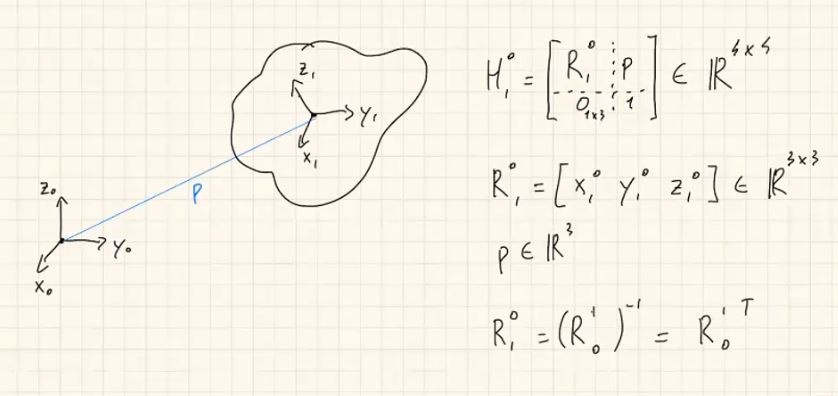 Z₁
Y₁
X₁
P
Z₀
Y₀
X₀
H₁⁰ = [ R₁⁰ P
0₁ₓ₃ 1 ] ∈ ℝ⁴ˣ⁴
R₁⁰ = [ x₁⁰ y₁⁰ z₁⁰ ] ∈ ℝ³ˣ³
P ∈ ℝ³
R₁⁰ = (R₀¹)⁻¹ = R₀¹ᵀ